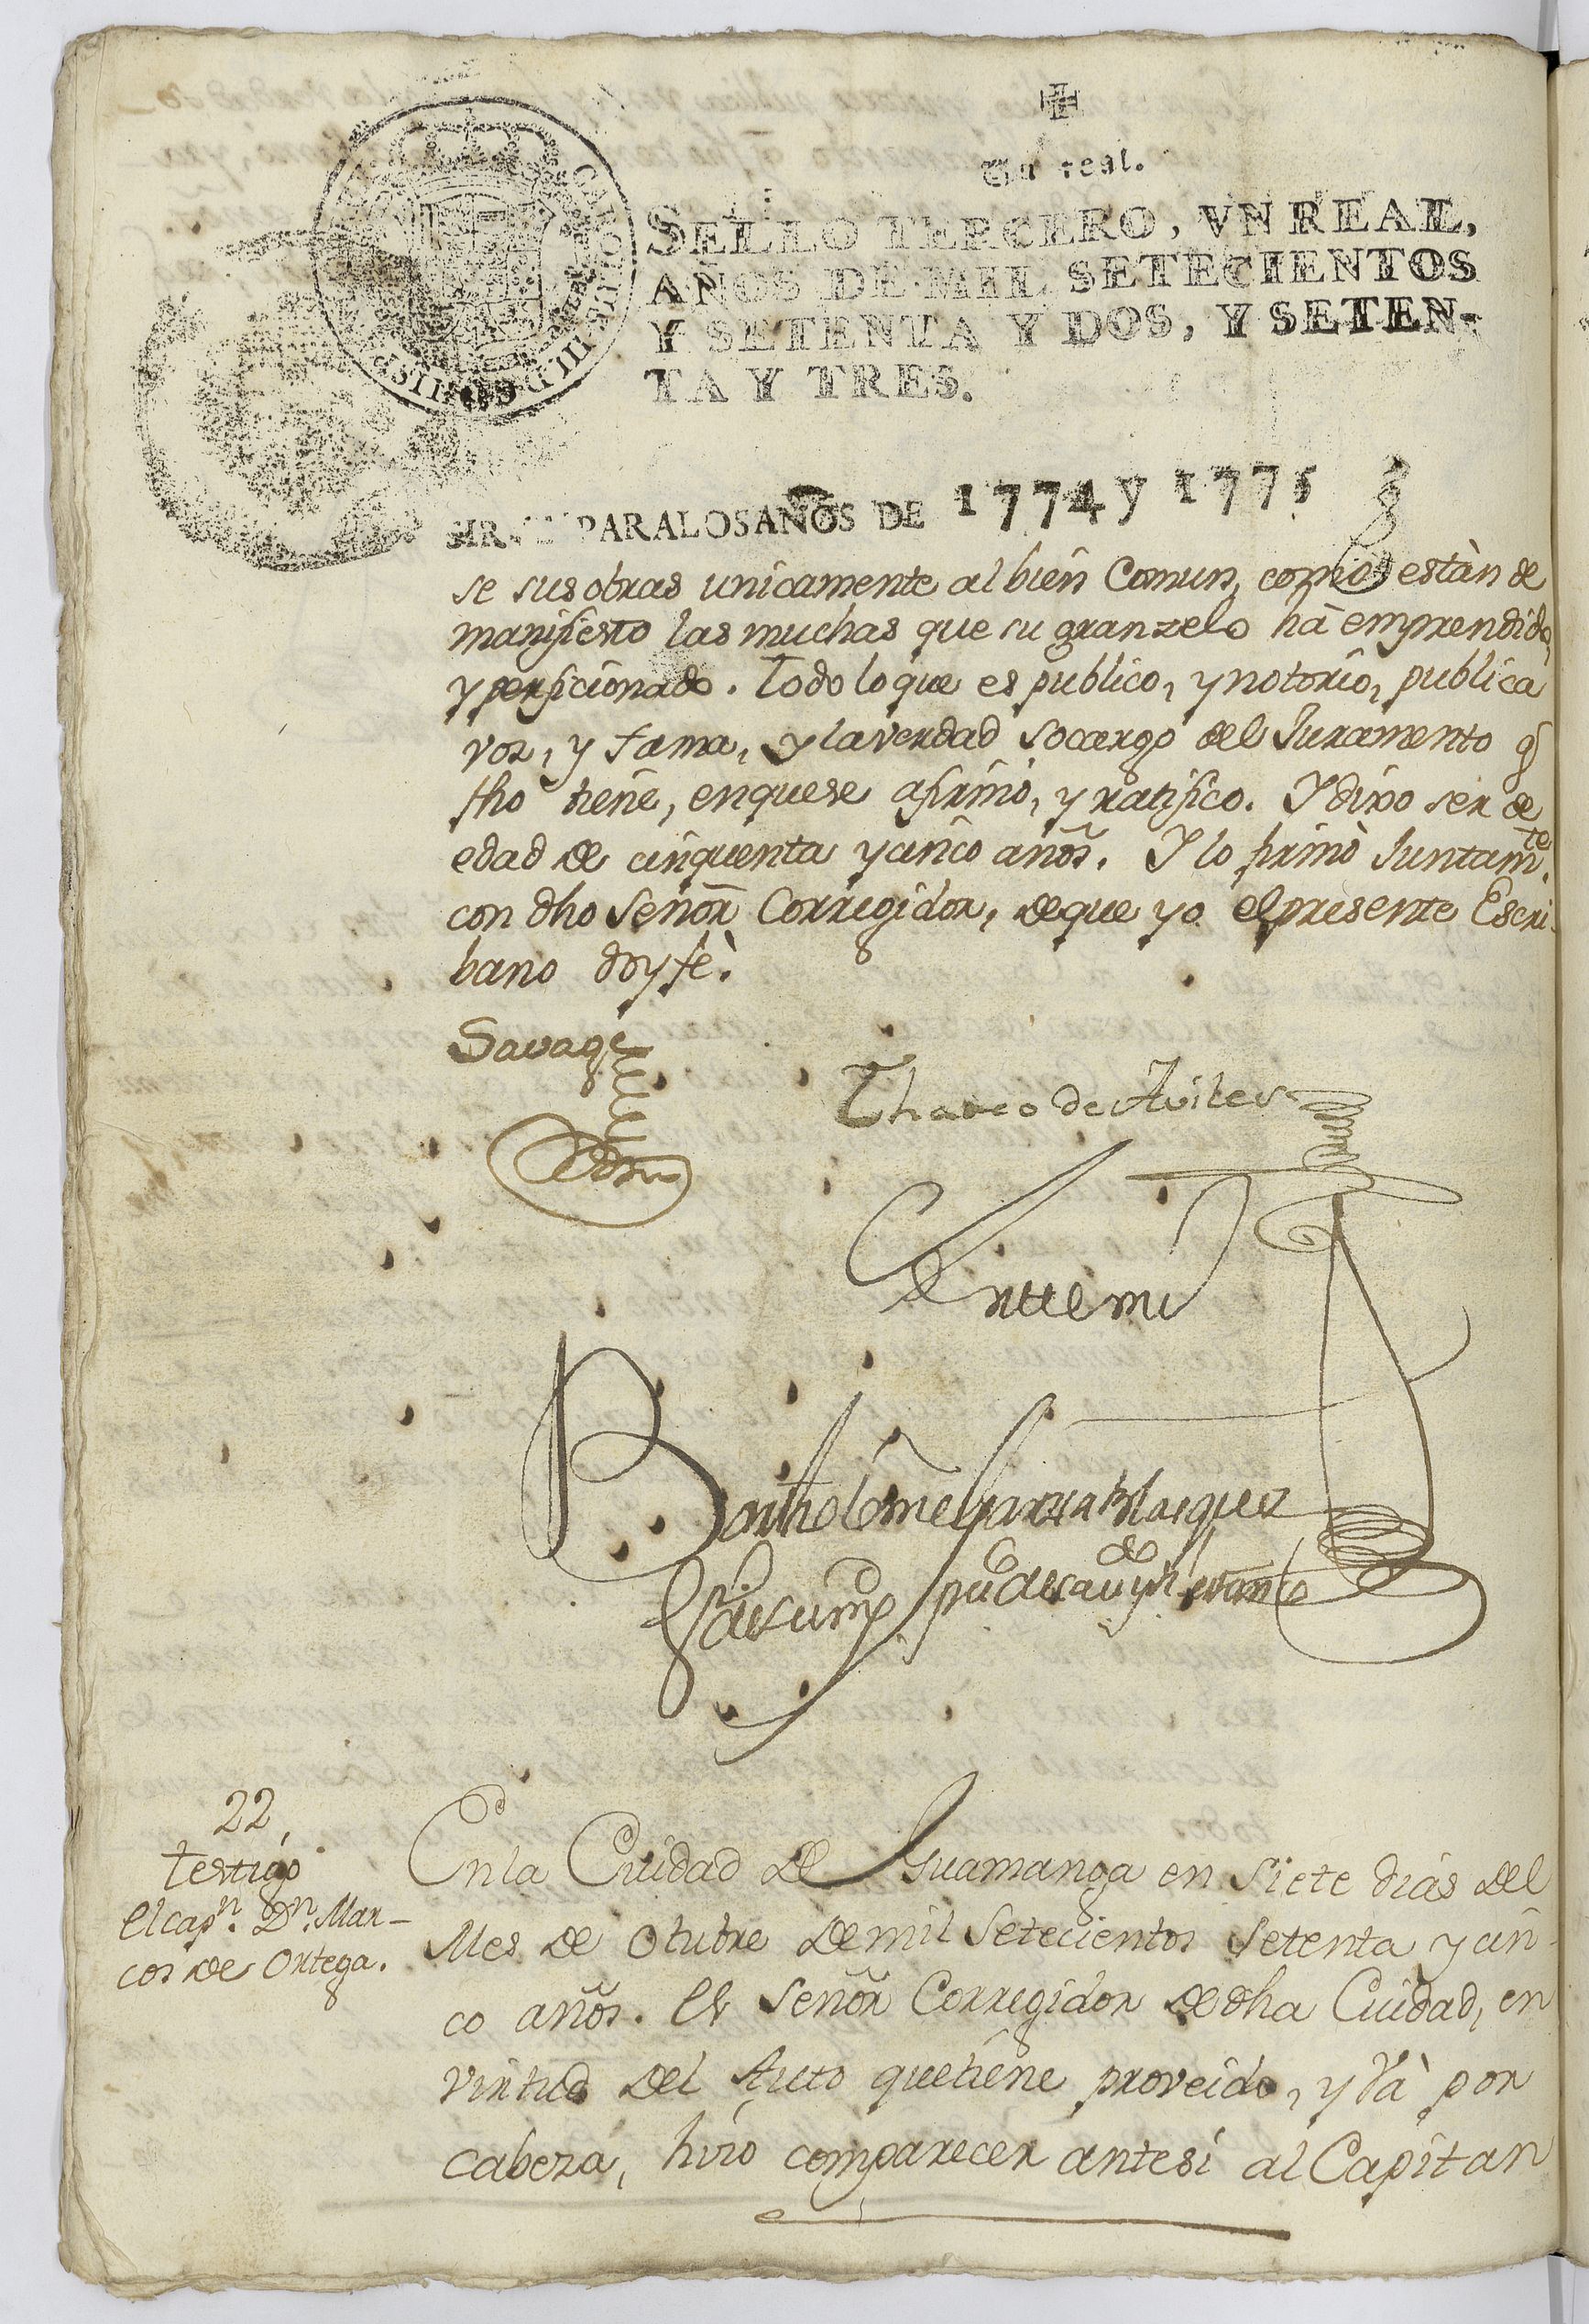 Un real.
SELLO TERCERO, VN REAL,
AÑOS DE MIL SETECIENTOS
Y SETENTA Y DOS, Y SETEN-
TA Y TRES.
PARA LOS AÑOS DE 1774 y 1775
se sus obras unicamente al bien Comun, como estàn de
manifiesto las muchas que su gran zelo hà emprendido,
y perficionado. Todo lo que es publico, y notorio, publica
voz, y fama, y la verdad socargo del Juramento q
fho tiene, en que se afirmò, y ratificò. Y dixo ser de
edad de cinquenta y cinco años. Y lo firmò Juntamte.
con dho Señor Corregidor, de que yo el presente Escri-
bano doy fè.
Savage
Thadeo de Aviles
Ante mi
Bartholome Garzia Blasquez
22,
Testigo
El capn. Dn. Mar-
cos de Ortega.
En la Cuidad de Guamanga en siete dias del
Mes de Otubre de mil Setecientos setenta y cin-
co años. El Señor Corregidor de dha Cuidad, en
virtud del Auto que tiene proveido, y và por
cabeza, hizo comparecer ante si al Capitan